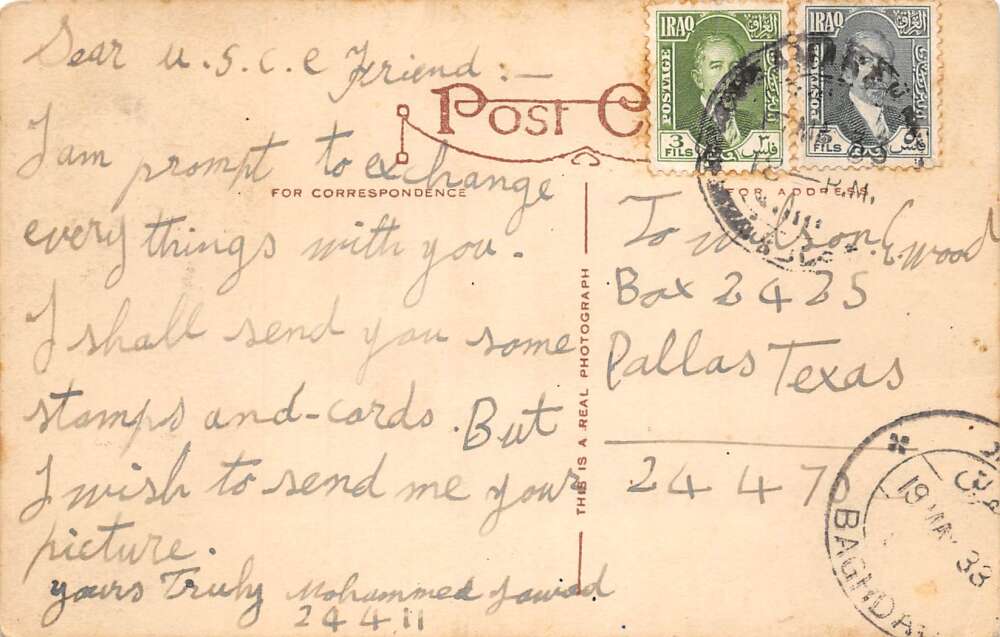 Dear U.S.C.E Friend :-
I am prompt to exchange
every things with you.
I shall send you some
stamps and-cards. But
I wish to send me your
picture.
yours Truly Mohammed Jawad
24411
POST C
FOR CORRESPONDENCE
FOR ADDRESS
THIS IS A REAL PHOTOGRAPH
To Wilson E. Wood
Box 2425
Dallas Texas
24470
IRAQ العراق
POSTAGE
3 FILS ٣ فلس
IRAQ العراق
POSTAGE
5 FILS فلس
P.M.
19 MAY 33
BAGHDA